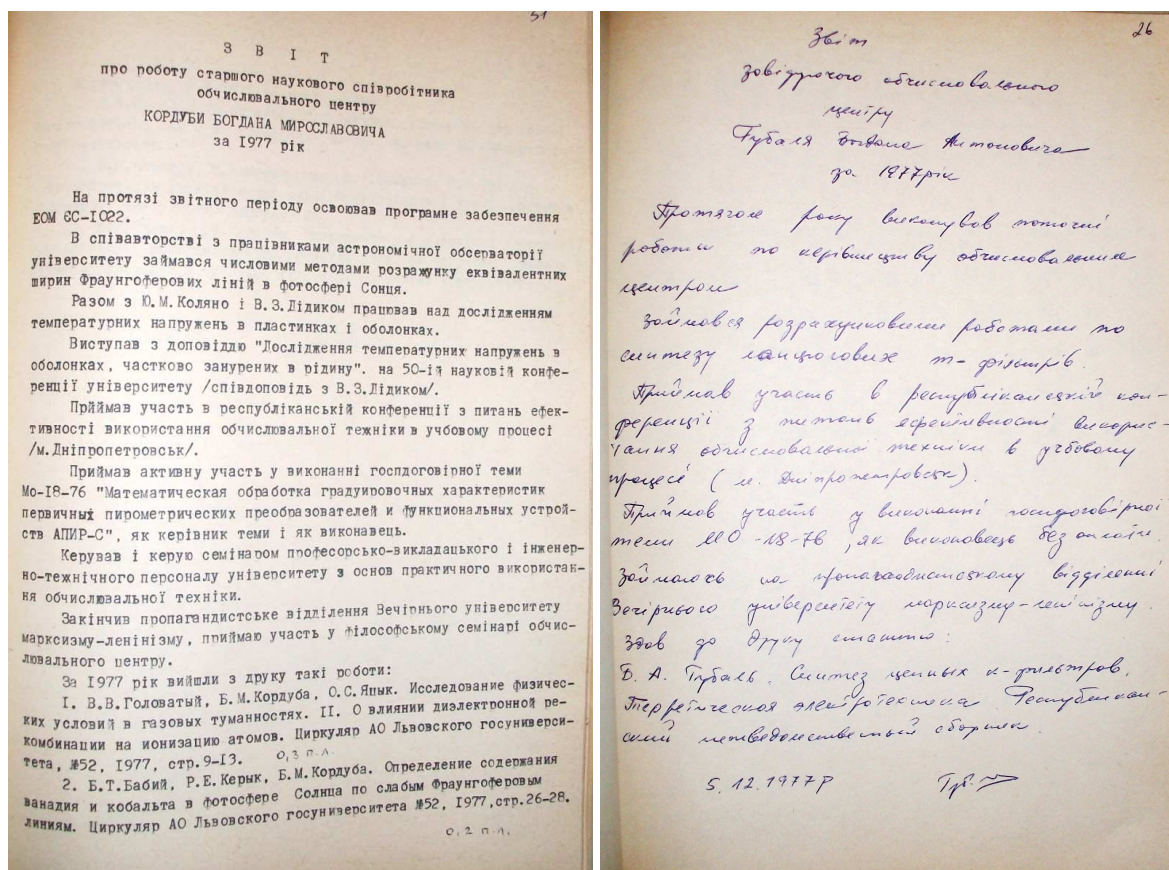 51
З В І Т
про роботу старшого наукового співробітника
обчислювального центру
КОРДУБИ БОГДАНА МИРОСЛАВОВИЧА
за 1977 рік
На протязі звітного періоду освоював програмне забезпечення
ЕОМ ЄС-1022.
В співавторстві з працівниками астрономічної обсерваторії
університету займався числовими методами розрахунку еквівалентних
ширин Фраунгоферових ліній в фотосфері Сонця.
Разом з Ю.М.Коляно і В.З.Дідиком працював над дослідженням
температурних напружень в пластинках і оболонках.
Виступав з доповіддю "Дослідження температурних напружень в
оболонках, частково занурених в рідину". на 50-ій науковій конфе-
ренції університету /співдоповідь з В.З.Дідиком/.
Приймав участь в республіканській конференції з питань ефек-
тивності використання обчислювальної техніки в учбовому процесі
/м.Дніпропетровськ/.
Приймав активну участь у виконанні госпдоговірної теми
Мо-18-76 "Математическая обработка градуировочных характеристик
первичных пирометрических преобразователей и функциональных устрой-
ств АПИР-С", як керівник теми і як виконавець.
Керував і керую семінаром професорсько-викладацького і інженер-
но-технічного персоналу університету з основ практичного використан-
ня обчислювальної техніки.
Закінчив пропагандистське відділення Вечірнього університету
марксизму-ленінізму, приймаю участь у філософському семінарі обчис-
лювального центру.
За 1977 рік вийшли з друку такі роботи:
1. В.В.Головатый, Б.М.Кордуба, О.С.Яцык. Исследование физичес-
ких условий в газовых туманностях. II. О влиянии диэлектронной ре-
комбинации на ионизацию атомов. Циркуляр АО Львовского госуниверси-
тета, №52, 1977, стр.9-13. 0,3 п.л.
2. Б.Т.Бабий, Р.Е.Керык, Б.М.Кордуба. Определение содержания
ванадия и кобальта в фотосфере Солнца по слабым Фраунгоферовым
линиям. Циркуляр АО Львовского госуниверситета №52, 1977,стр.26-28.
0,2 п.л.
26
Звіт
завідуючого обчислювального
центру
Губаля Богдана Антоновича
за 1977 рік
Протягом року виконував поточні
роботи по керівництву обчислювальним
центром
Займався розрахунковими роботами по
синтезу ланцюгових m-фільтрів.
Приймав участь в республіканській кон-
ференції з питань ефективності викорис-
тання обчислювальної техніки в учбовому
процесі (м. Дніпропетровськ).
Приймав участь у виконанні госпдоговірної
теми МО-18-76, як виконавець без оплати.
Займаюсь на пропагандистському відділенні
Вечірнього університету марксизму-ленінізму.
Здав до друку статтю:
Б. А. Губаль. Синтез цепных к-фильтров.
Теоретическая электротехника. Республикан-
ский межведомственный сборник.
5.12.1977р